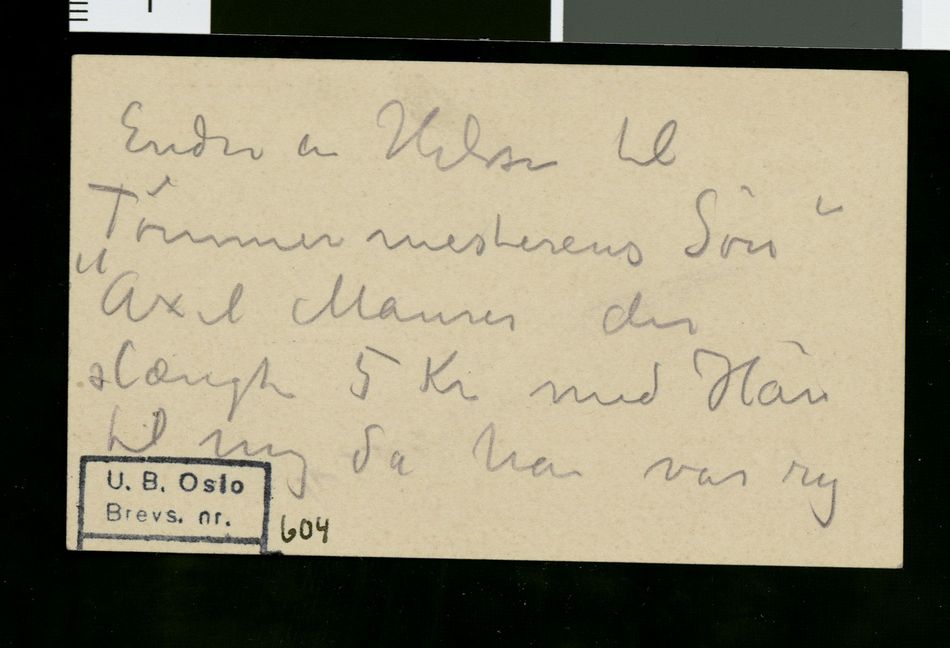 Endnu en Hilsen til
Tömmermesterens Sön"
"Axel Maurer der
slængte 5 Kr med Hån
til mig da han var ryg
U. B. Oslo
Brevs. nr.
604